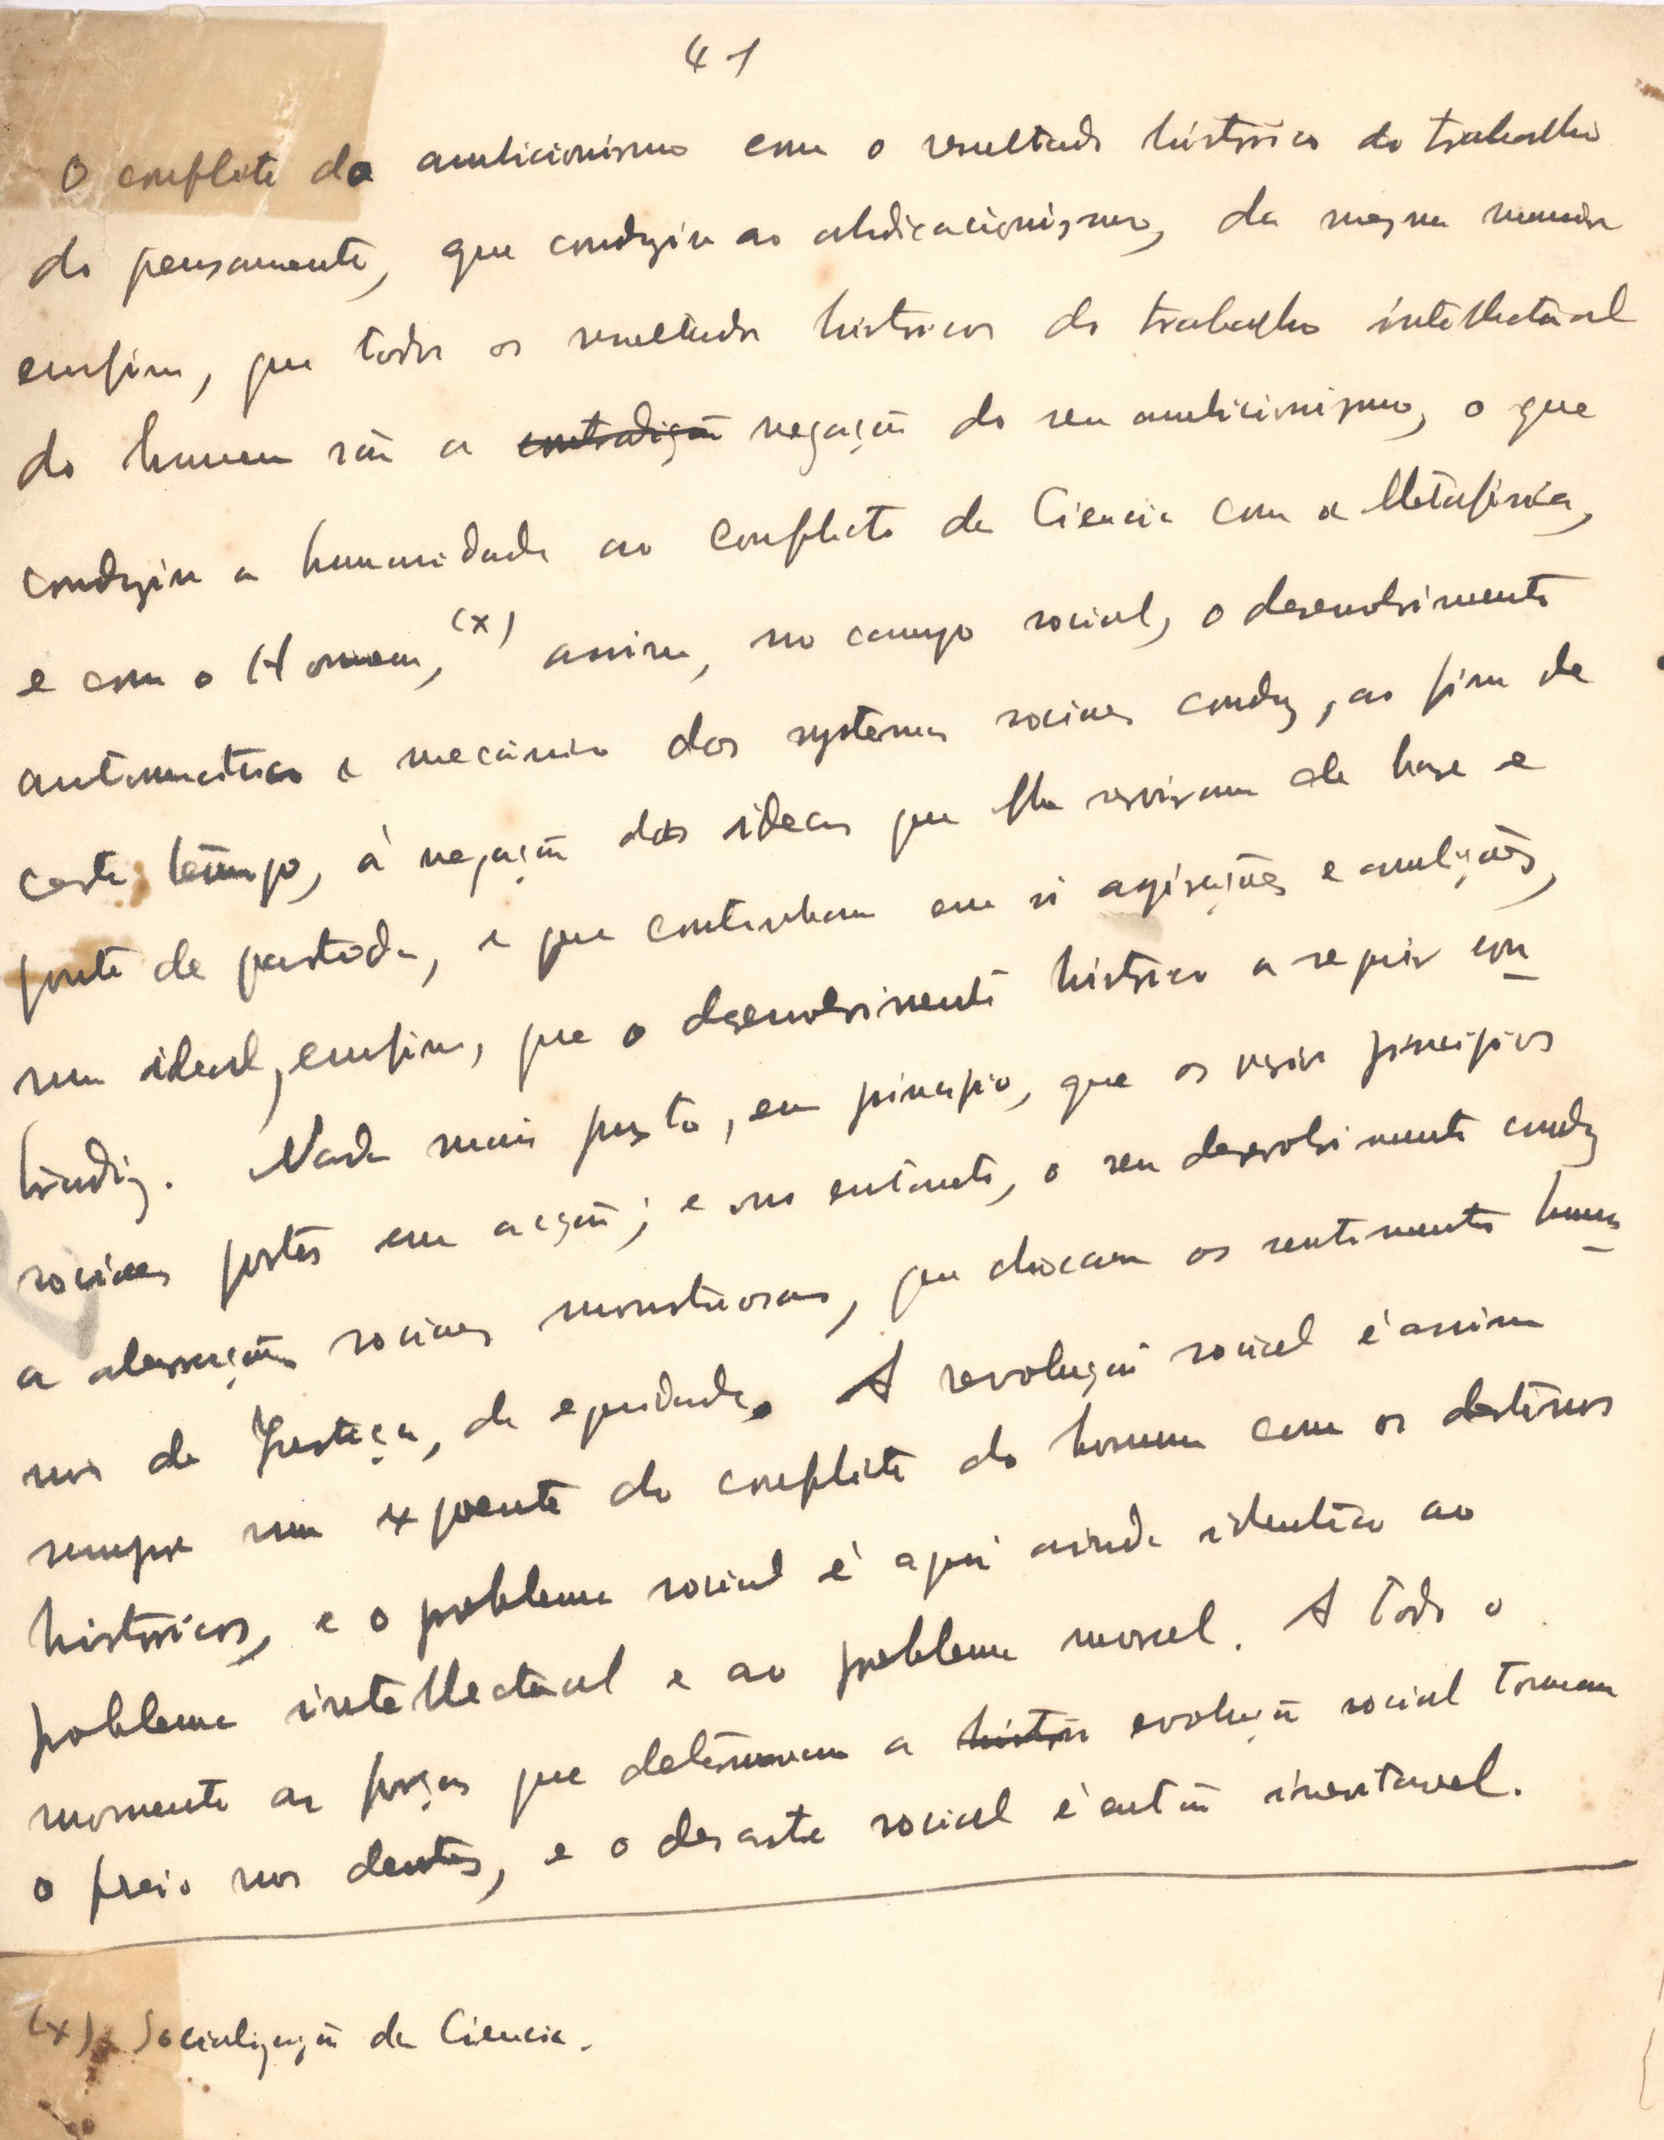 41
O conflito do ambicionismo com o resultado histórico do trabalho
do pensamento, que conduziu ao abdicacionismo, da mesma maneira
emfim, que todos os resultados históricos do trabalho intellectual
do homem são a contradição negação do seu ambicionismo, o que
conduziu a humanidade ao conflicto da Ciencia com a Metafísica,
e com o Homem, (x) assim, no campo social, o desenvolvimento
automatico e mecanico dos systemas sociaes conduz, ao fim de
certo tempo, à negação das ideas que lhe serviram de base e
ponto de partida, e que continham em si aspirações e ambições,
um ideal, emfim, que o desenvolvimento histórico a seguir con
tradiz. Nada mais justo, em principio, que os varios principios
sociaes postos em acção; e no entanto, o seu desenvolvimento conduz
a aberrações sociaes monstruosas, que chocam os sentimentos huma
nos de Justiça, de equidade. A revolução social é assim
sempre um expoente do conflicto do homem com os destinos
historicos, e o problema social é aqui ainda identico ao
problema intellectual e ao problema moral. A todo o
momento as forças que determinam a evolução social tomam
o freio nos dentes, e o desastre social é então inevitavel.
(x) Socialização da Ciencia.